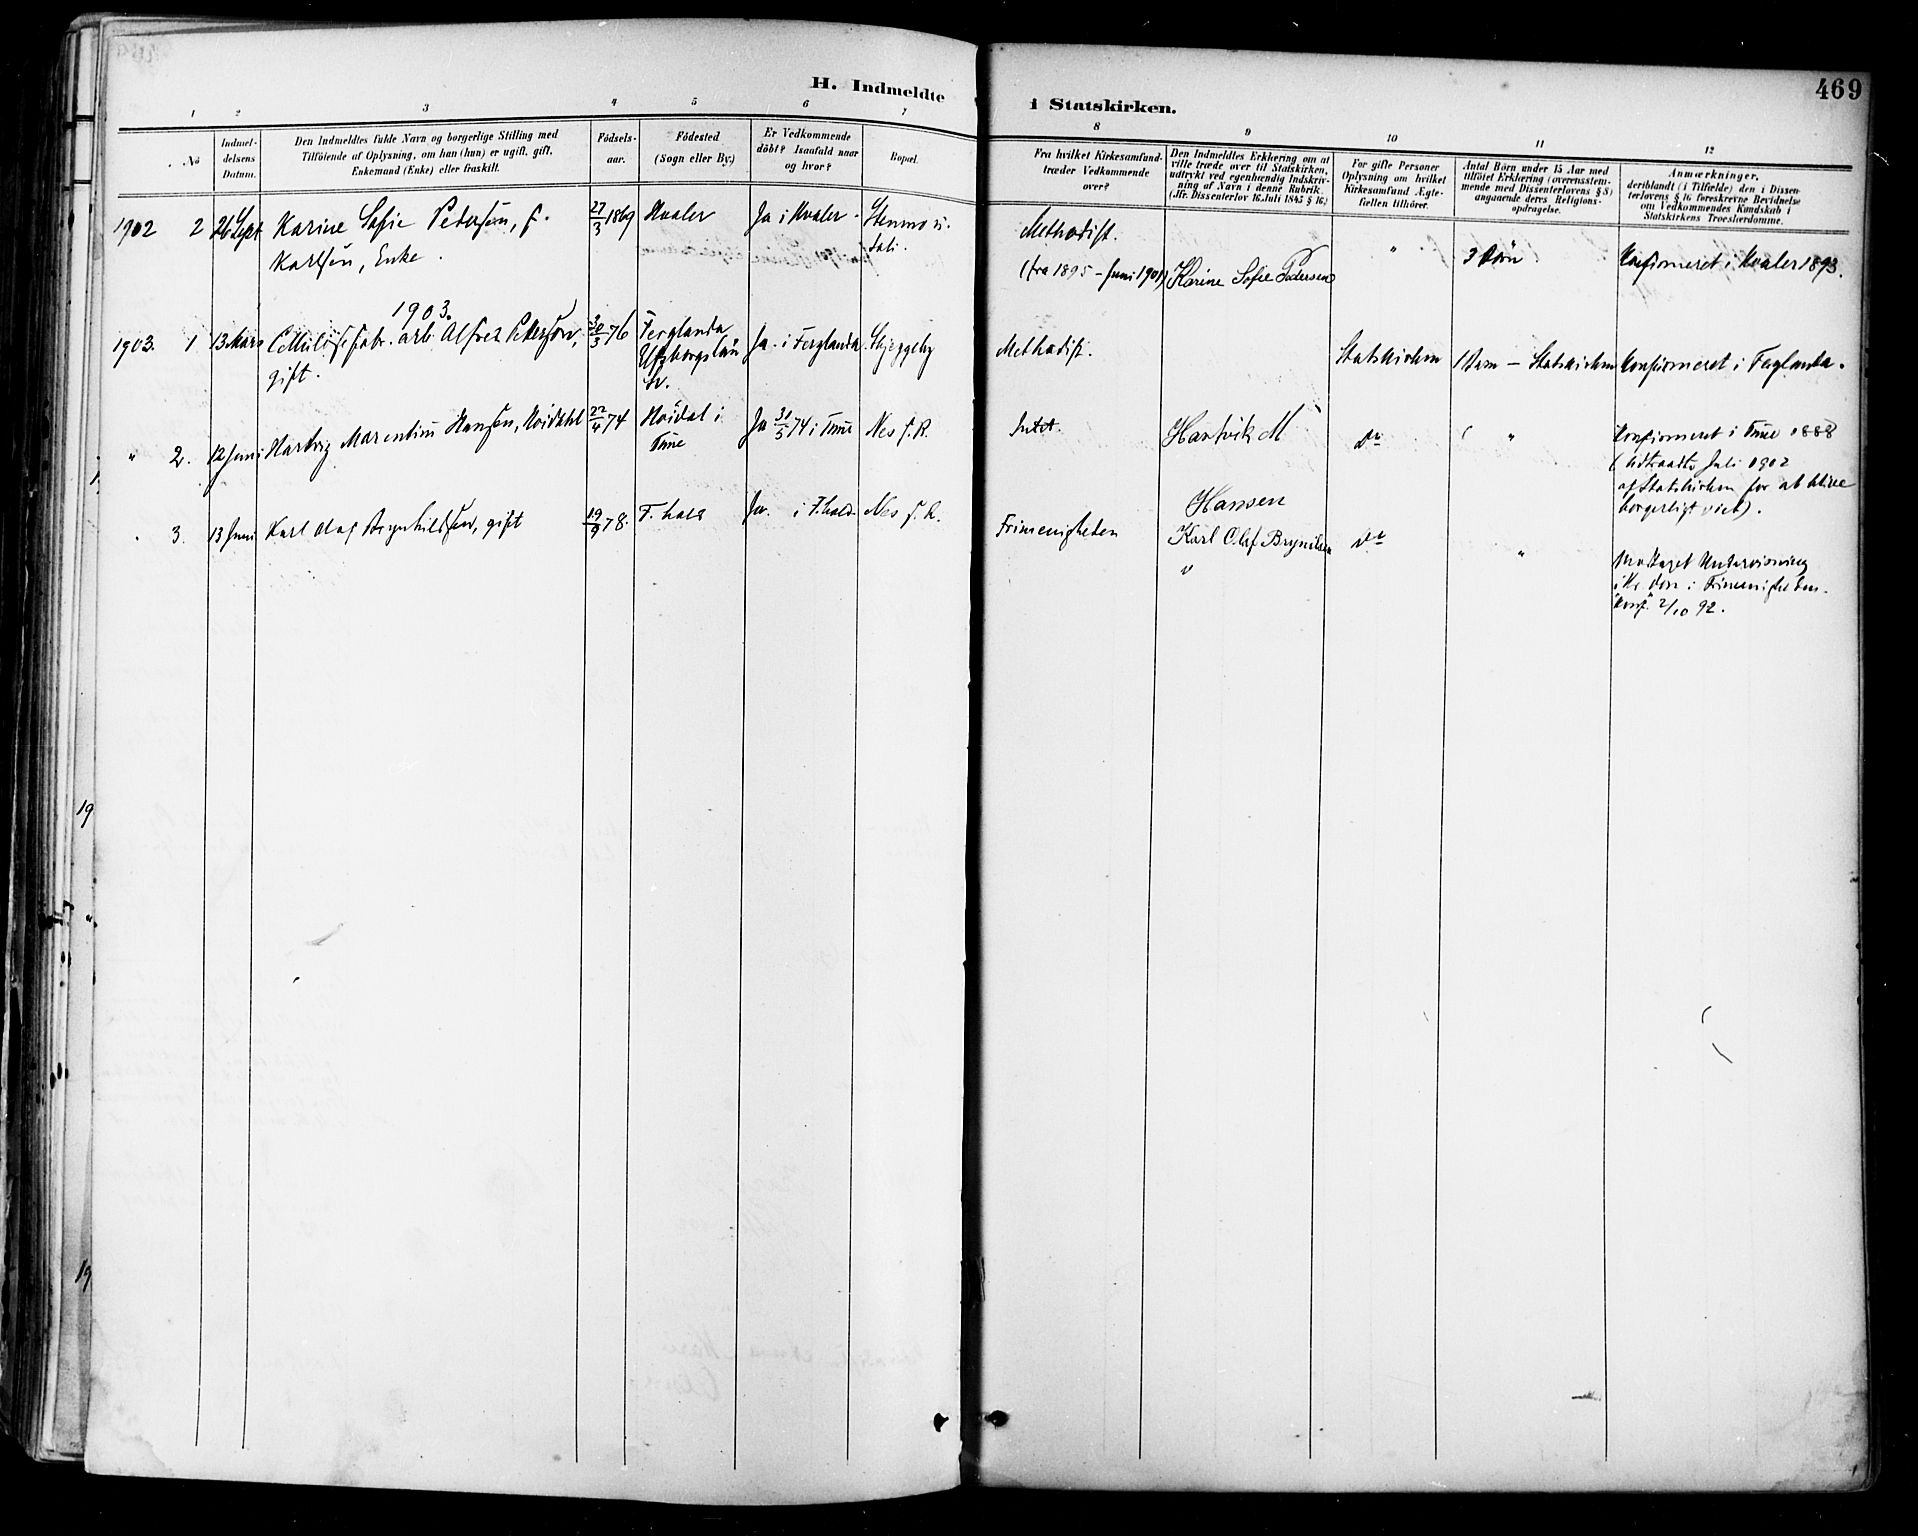 469
H. Indmeldte i Statskirken.
1 2 3 4 5 6 7 8 9 10 11 12
No
Indmel-
delsens
Datum.
Den Indmeldtes fulde Navn og borgerlige Stilling med
Tilföiende af Oplysning, om han (hun) er ugift, gift,
Enkemand (Enke) eller fraskilt.
Födsels-
aar.
Födested
(Sogn eller By.)
Er Vedkommende
döbt? Isaafald naar
og hvor?
Bopæl.
Fra hvilket Kirkesamfund
træder Vedkommende
over?
Den Indmeldtes Erklæring om at
ville træde over til Statskirken,
udtrykt ved egenhændig Indskriv-
ning af Navn i denne Rubrik.
(Jfr. Dissenterlov 16. Juli 1845 § 16.)
For gifte Personer
Oplysning om hvilket
Kirkesamfund Ægte-
fællen tilhörer.
Antal Börn under 15 Aar med
tilföiet Erklæring (overensstem-
mende med Dissenterlovens § 8)
angaaende deres Religions-
opdragelse.
Anmærkninger,
deriblandt (i Tilfælde) den i Dissen-
terlovens § 16 foreskrevne Bevidnelse
om Vedkommendes Kundskab i
Statskirkens Troeslærdomme.
1902 2 26 Sept Karine Sofie Pedersen, f.
Karlsen, Enke.
27/3 1869
Hvaler
Ja i Hvaler.
Methodist.
(fra 1895 - Juni 1901)
Karine Sofie Pedersen
"
3 Börn
Konfirmeret i Hvaler 1893.
1903.
1903. 1 13 Mars Cellulosefabr. arb. Alfred Petterson,
gift.
30/5 76
Ferglanda
Elfsborgslän
Sv.
Ja i Ferglanda
Skjeggeby
Methodist.
Statskirken
1 Barn - Statskirken
Konfirmeret i Ferglanda.
" 2. 12 Juni Hartvig Marentius Hansen, Höidahl
22/4 74
Höidal i
Tune
Ja 31/5 74 i Tune
Nes f. R.
Intet.
Hartvik M
Hansen
do
"
Konfirmeret i Tune 1888
(Udtraadt Juli 1902
af Statskirken for at blive
borgerligt viet).
3. 13 Juni Karl Olaf Brynhildsen, gift
19/9 78.
F.hald
Ja i F.hald
Nes f. R.
Frimenigheden
Karl Olaf Brynilsen
do
"
Modtaget Undervisning
i Frimenigheden.
"konf." 2/10 92.